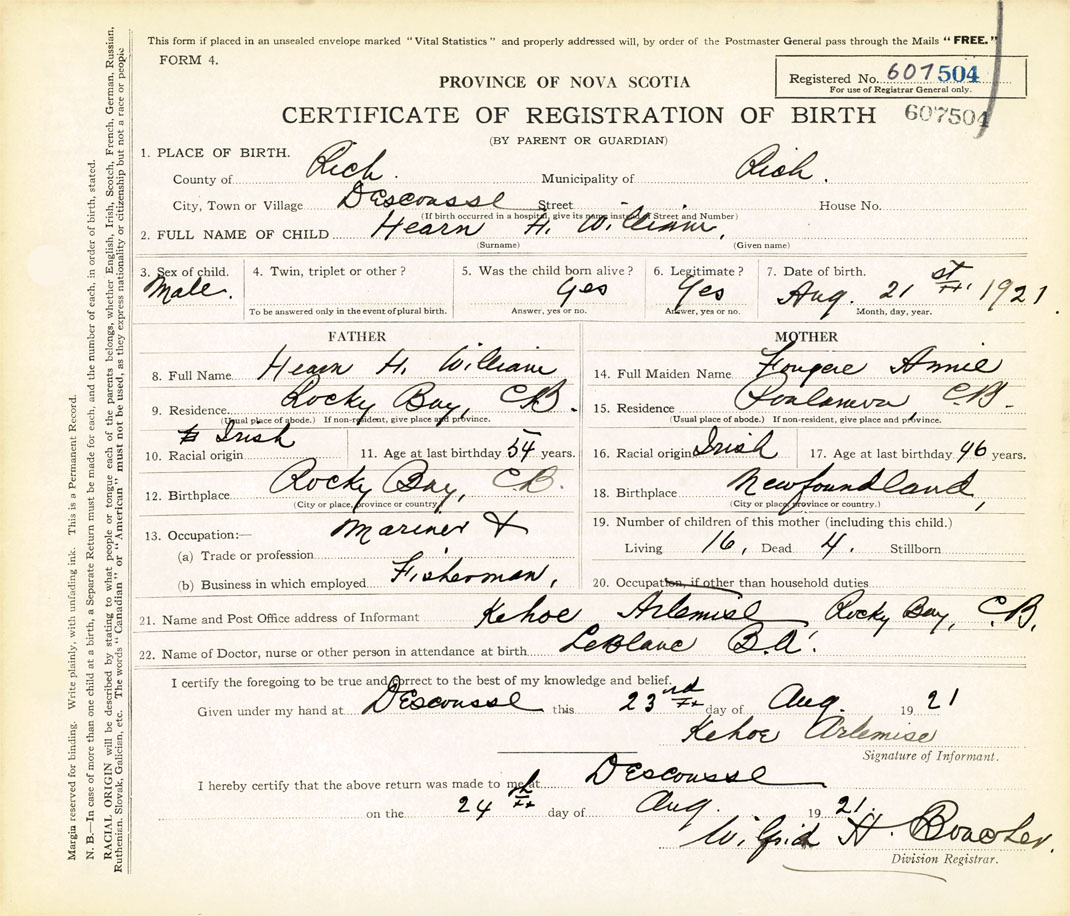 This form if placed in an unsealed envelope marked "Vital Statistics" and properly addressed will, by order of the Postmaster General pass through the Mails "FREE."
FORM 4.
Registered No. 607504
For use of Registrar General only.
PROVINCE OF NOVA SCOTIA
CERTIFICATE OF REGISTRATION OF BIRTH
607504
(BY PARENT OR GUARDIAN)
1. PLACE OF BIRTH.
County of Rich. Municipality of Rich.
City, Town or Village Descousse Street House No.
(If birth occurred in a hospital, give its name instead of Street and Number)
2. FULL NAME OF CHILD Hearn H. William,
(Surname) (Given name)
3. Sex of child. 4. Twin, triplet or other? 5. Was the child born alive? 6. Legitimate? 7. Date of birth.
Male. Yes Yes Aug. 21st 1921
To be answered only in the event of plural birth. Answer, yes or no. Answer, yes or no. Month, day, year.
FATHER
8. Full Name Hearn H. William
9. Residence Rocky Bay, C.B.
(Usual place of abode.) If non-resident, give place and province.
10. Racial origin Irish 11. Age at last birthday 54 years.
12. Birthplace Rocky Bay, C.B.
(City or place, province or country.)
13. Occupation:— Mariner &
(a) Trade or profession
(b) Business in which employed Fisherman,
MOTHER
14. Full Maiden Name Fougere Annie
15. Residence C.B.
(Usual place of abode.) If non-resident, give place and province.
16. Racial origin Irish 17. Age at last birthday 46 years.
18. Birthplace Newfoundland,
(City or place, province or country.)
19. Number of children of this mother (including this child.)
Living 16, Dead 4. Stillborn
20. Occupation, if other than household duties
21. Name and Post Office address of Informant Kehoe Artemise Rocky Bay, C.B.
22. Name of Doctor, nurse or other person in attendance at birth LeBlanc B.A.
I certify the foregoing to be true and correct to the best of my knowledge and belief.
Given under my hand at Descousse this 23nd day of Aug. 1921
Kehoe Artemise
Signature of Informant.
I hereby certify that the above return was made to me at Descousse
on the 24th day of Aug. 1921.
Wilfrid H.
Division Registrar.
Margin reserved for binding. Write plainly, with unfading ink. This is a Permanent Record.
N. B.—In case of more than one child at a birth, a Separate Return must be made for each, and the number of each, in order of birth, stated.
RACIAL ORIGIN will be described by stating to what people or tongue each of the parents belongs, whether English, Irish, Scotch, French, German, Russian,
Ruthenian, Slovak, Galician, etc. The words "Canadian" or "American" must not be used, as they express nationality or citizenship but not a race or people